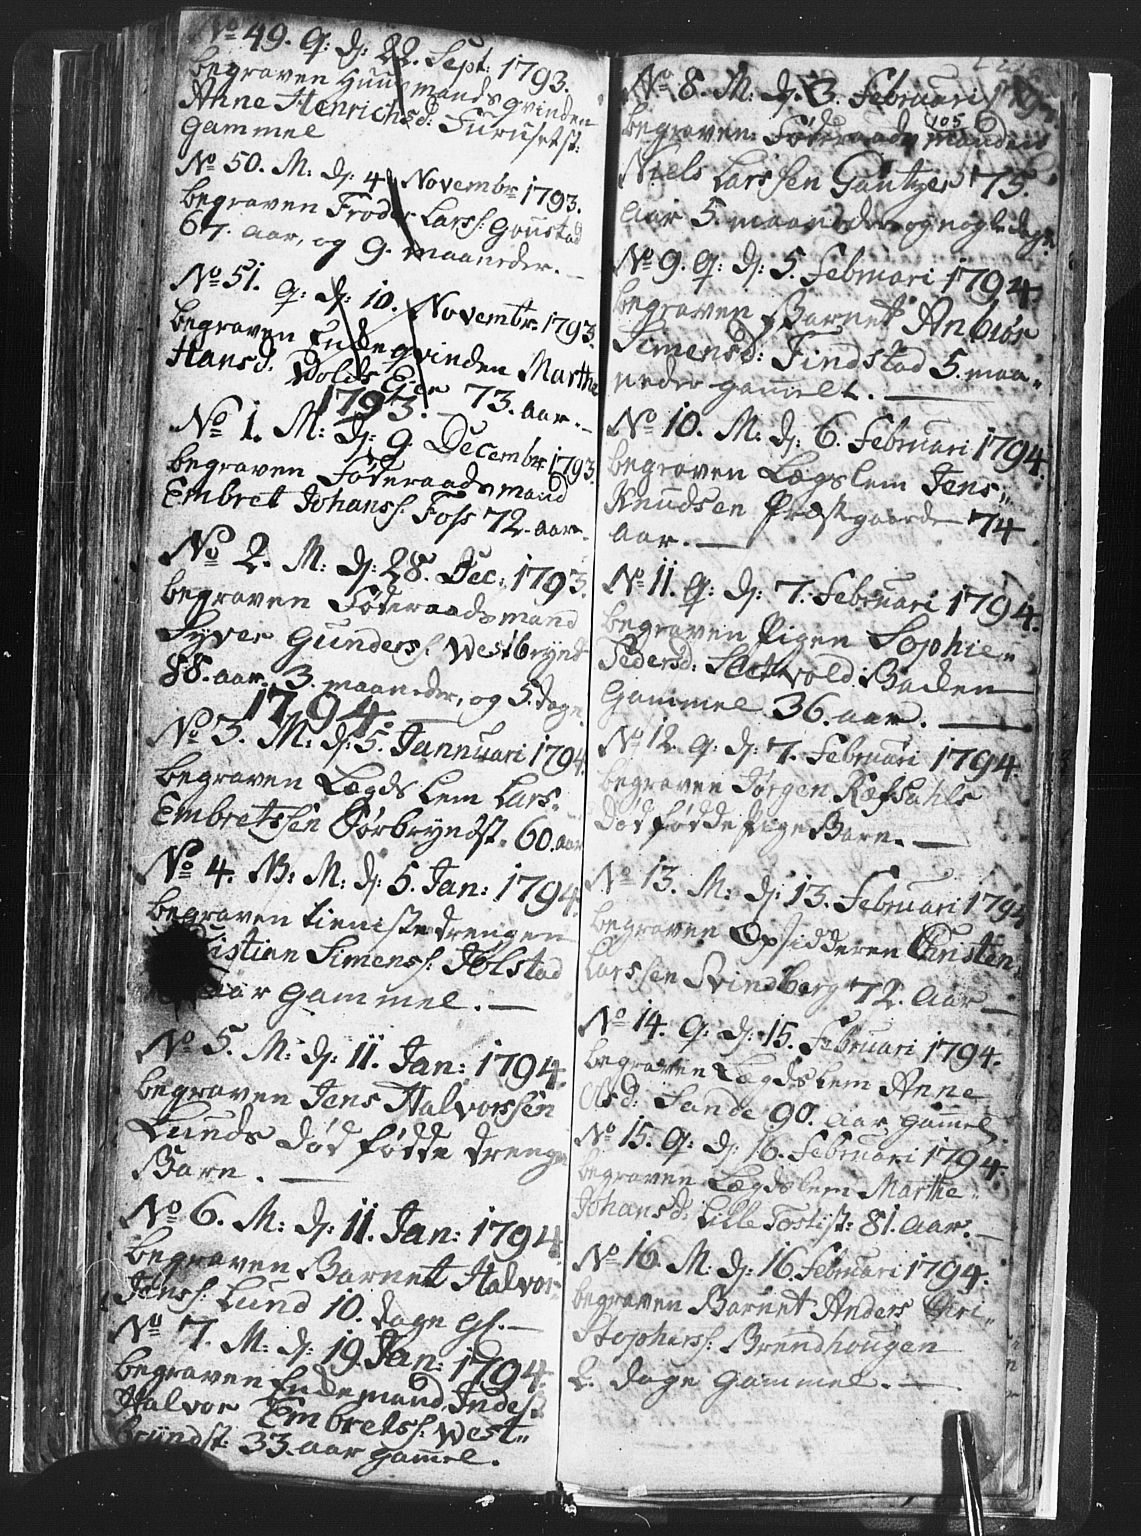 No 49. Q: d: 22. Sept: 1793.
begraven Huusmandsqvinden
Anne Henrichsd: Furuset st:
gammel
No 50. M: d: 4. Novembr: 1793.
begraven Froder Larss: Goustad
67. aar, og 9. maaneder. —
No 51. Q: d: 10. Novembr: 1793.
begraven Endeqvinden Marthe
Hansd. Volds Eier 73. aar. —
1793.
No 1. M: d: 9. Decembr: 1793.
begraven Föderaadsmand
Embret Johanss: Foss 72. aar.
No 2. M: d: 28. Dec: 1793.
begraven Föderaadsmand
Syver Gunderss: Westbrynds
88. aar. 3. maaneder, og 5. dage
1794.
No 3. M: d: 5. Jannuari 1794.
begraven Lægds Lem Lars-
Embretssen Sörbryndst. 60. aar
No 4. M: d: 5. Jan: 1794.
begraven tieniste drengen
istian Simenss: Jölstad
aar gammel. —
No 5. M: d: 11. Jan: 1794.
begraven Jens Halvorssen
Lunds död födde drenge
Barn. —
No 6. M: d: 11. Jan: 1794
begraven Barnet Halvor
Jenss: Lund 10. dage gl. —
No 7. M: d: 19. Jan: 1794.
begraven Endemand, Indest
Halvor Embretss: West-
bryndst: 33. aar gammel.
105
No 8. M: d: 3. Februari
begraven: Föderaadsmanden
Niels Larssen Gäntzer 75.
aar 5. maaneder og nogle dage.
No 9. Q: d: 5. Februari 1794.
begraven Barnet Anbiör
Simensd: Findstad 5. maa-
neder gammelt. —
No 10. M: d: 6. Februari 1794.
begraven Lægslem Jens-
Knudsen Præstgaarde 74
aar. —
No 11. Q: d: 7. Februari 1794.
begraven Pigen Sophie-
Pedersd: vold: Baden
gammel 36. aar. —
No 12. Q: d: 7. Februari 1794.
begraven Jörgen Ræfsahls
död födde Pige Barn. —
No 13. M: d: 13. Februari 1794
begraven Opsidderen Christen
Larssen Svindberg 72. Aar —
No 14. Q: d: 15. Februari 1794.
begraven Lægdslem Anne
Olsd: Sande 90. aar gammel.
No 15. Q: d: 16. Februari 1794.
begraven Lægdslem Marthe-
Johansd: Lille Tostist: 81. aar. —
No 16. M: d: 16. Februari 1794.
begraven Barnet Anders Chri-
Stophers: Brendhougen
2. dage gammel. —